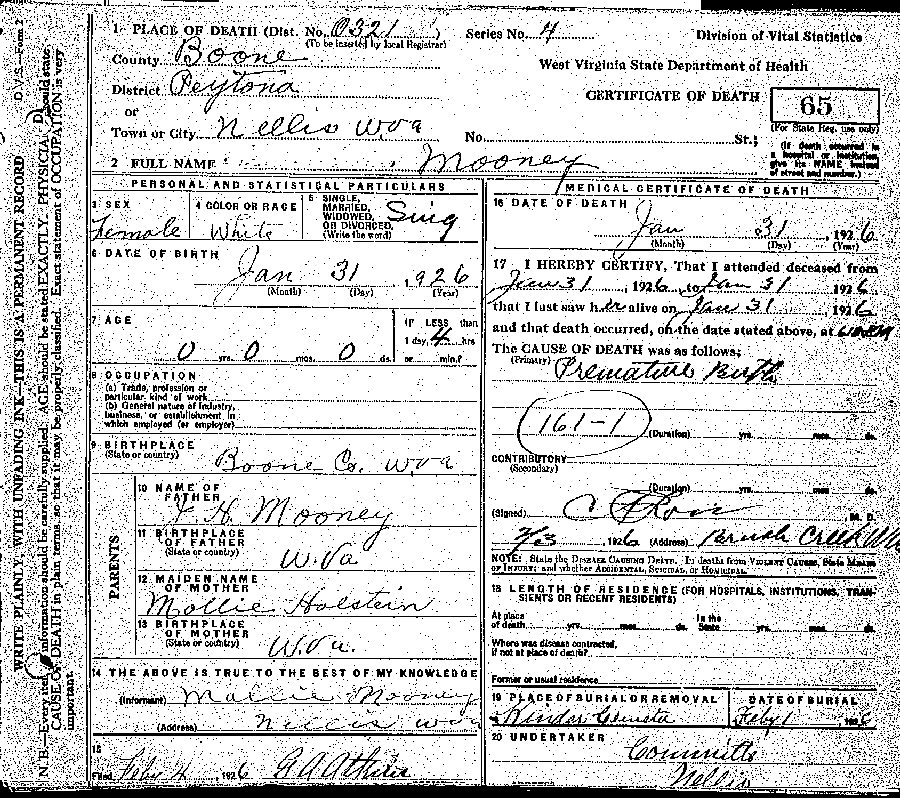 1 PLACE OF DEATH (Dist. No. 0321 ) Series No. 4 Division of Vital Statistics
(To be inserted by local Registrar)
County Boone West Virginia State Department of Health
District Peytona CERTIFICATE OF DEATH 65
or (For State Reg. use only)
Town or City Nellis W Va No. St.;
(If death occurred in
a hospital or institution,
give its NAME instead
of street and number.)
2 FULL NAME Mooney
PERSONAL AND STATISTICAL PARTICULARS
3 SEX
Female
4 COLOR OR RACE
White
5 SINGLE,
MARRIED,
WIDOWED,
OR DIVORCED.
(Write the word)
Sing
6 DATE OF BIRTH
Jan 31 , 1926
(Month) (Day) (Year)
7 AGE
0 yrs. 0 mos. 0 ds.
If LESS than
1 day, 4 hrs
or min.?
8 OCCUPATION
(a) Trade, profession or
particular kind of work
(b) General nature of industry,
business, or establishment in
which employed (or employer)
9 BIRTHPLACE
(State or country)
Boone Co. W Va
PARENTS
10 NAME OF
FATHER
H Mooney
11 BIRTHPLACE
OF FATHER
(State or country)
W. Va
12 MAIDEN NAME
OF MOTHER
Mollie Holstein
13 BIRTHPLACE
OF MOTHER
(State or country)
W. Va.
14 THE ABOVE IS TRUE TO THE BEST OF MY KNOWLEDGE
(Informant) Mollie Mooney
(Address) Nellis W Va
15
Filed Feby 4 1926
MEDICAL CERTIFICATE OF DEATH
16 DATE OF DEATH
Jan 31 , 1926
(Month) (Day) (Year)
17 I HEREBY CERTIFY, That I attended deceased from
31 , 1926, to Jan 31 1926
that I last saw her alive on Jan 31 , 1926
and that death occurred, on the date stated above, at
The CAUSE OF DEATH was as follows:
(Primary) Premature Birth
161-1
(Duration) yrs. mos. ds.
CONTRIBUTORY
(Secondary)
(Duration) yrs. mos. ds.
(Signed) M. D.
2/3 , 1926 (Address) Brush Creek
NOTE: State the DISEASE CAUSING DEATH. In deaths from VIOLENT CAUSES, State MEANS
OF INJURY; and whether ACCIDENTAL, SUICIDAL, or HOMICIDAL.
18 LENGTH OF RESIDENCE (FOR HOSPITALS, INSTITUTIONS, TRAN-
SIENTS OR RECENT RESIDENTS)
At place
of death yrs. mos. ds.
In the
State yrs. mos. ds.
Where was disease contracted,
if not at place of death?
Former or usual residence
19 PLACE OF BURIAL OR REMOVAL
DATE OF BURIAL
Feby 1 1926
20 UNDERTAKER
Committe
Nellis
D. V. S.—Form 2
WRITE PLAINLY WITH UNFADING INK—THIS IS A PERMANENT RECORD
N. B.—Every item of information should be carefully supplied. AGE should be stated EXACTLY. PHYSICIANS should state
CAUSE OF DEATH in plain terms, so that it may be properly classified. Exact statement of OCCUPATION is very
important.